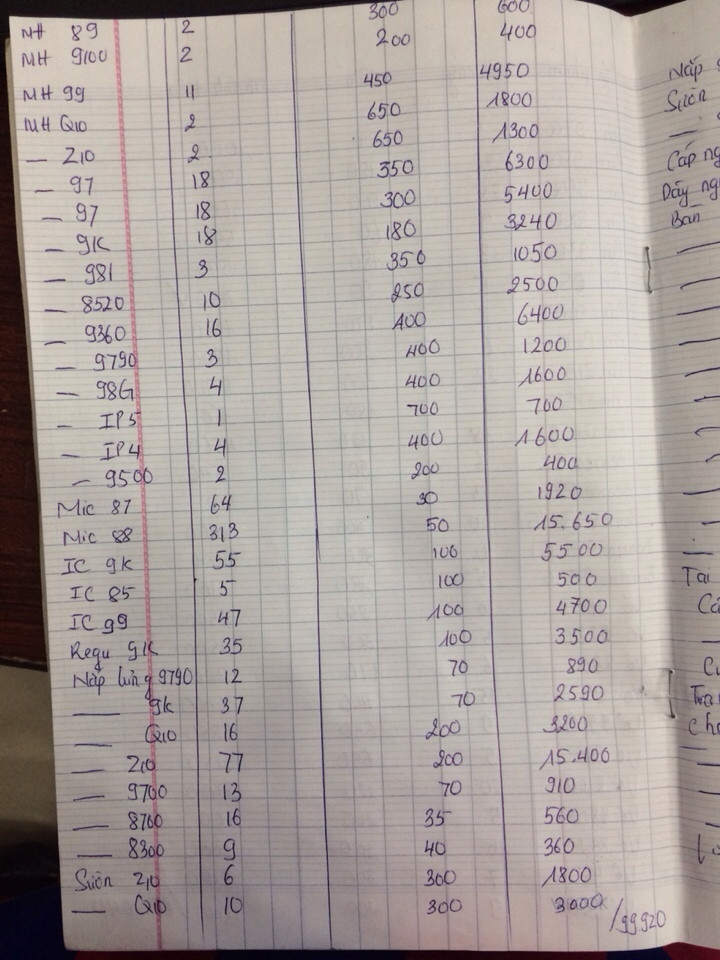 MH 89 2 300 600
MH 9100 2 200 400
MH 99 11 450 4950
MH Q10 2 650 1800
— Z10 2 650 1300
— 97 18 350 6300
— 97 18 300 5400
— 9K 18 180 3240
— 981 3 350 1050
— 8520 10 250 2500
— 9360 16 400 6400
— 9790 3 400 1200
— 98G 4 400 1600
— IP5 1 700 700
— IP4 4 400 1600
— 9500 2 200 400
Mic 87 64 30 1920
Mic 88 313 50 15.650
IC 9K 55 100 5500
IC 85 5 100 500
IC 99 47 100 4700
Regu 9K 35 100 3500
Nắp lưng 9790 12 70 890
— 9K 37 70 2590
— Q10 16 200 3200
— Z10 77 200 15.400
— 9700 13 70 910
— 8700 16 35 560
— 8300 9 40 360
Sườn Z10 6 300 1800
— Q10 10 300 3000
/99920
Nắp
Sườn
—
Cáp
Dây
Bàn
Tai